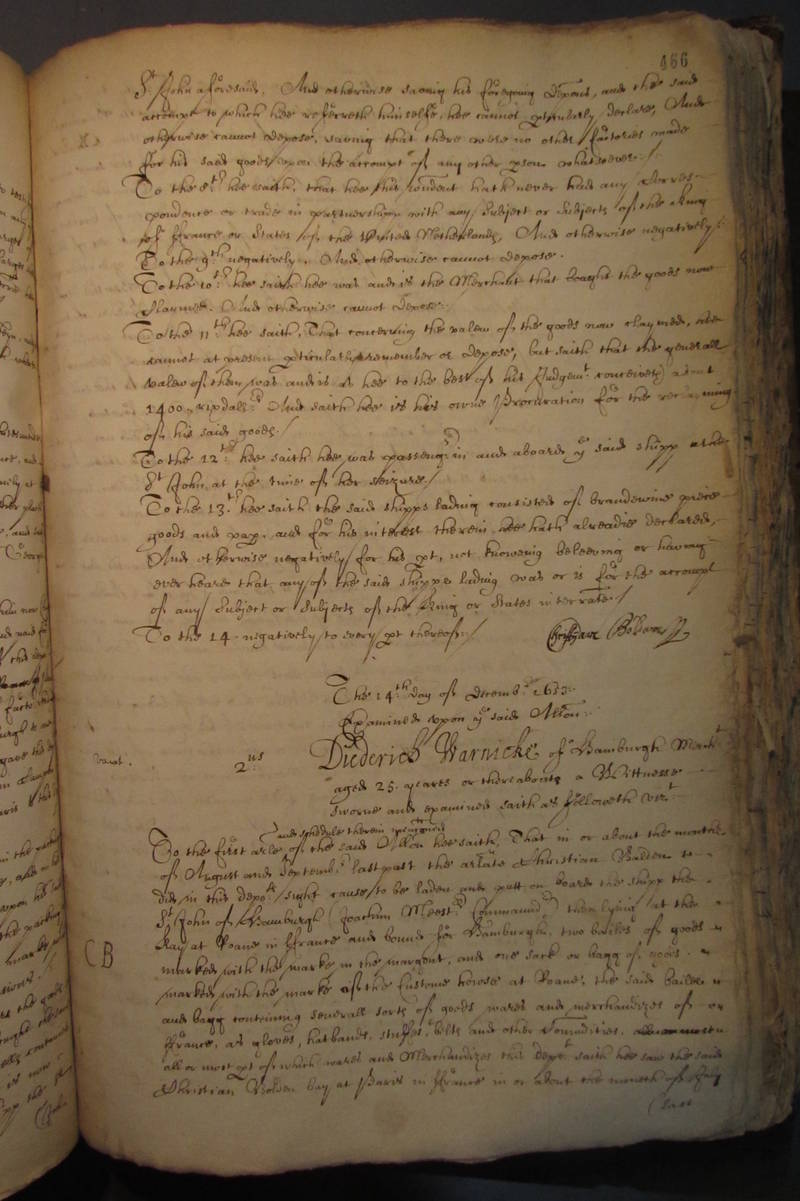 466
St John aforesaid, And otherwise saving his foregoing deposn, and the said
accompt to which hee referreth himselfe, hee cannot perticularly declare, And
otherwise cannot depose, saving that there were no other factories made
for his said goods upon the accompt of any other pson whatsoever./
To the 8th hee saith, that hee this rendent hath never had any Corres-
pondence or trade in partnershipp with any Subject or Subjects of the King
of ffrance or States of the United Netherlands, And otherwise negatively./
To the 9th negatively. And otherwise cannot depose.
To the 10th hee saith hee was and is the Merchant that bought the goods now
claymed. And otherwise cannot depose.
To the 11th hee saith, That concerning the valew of the goods now claymed, hee
cannot at present perticularly remember or depose, but saith that the generall
valew of them was and is as hee to the best of his Judgemt conceiveth about
1400 rixdallrs And saith hee is his owne Procuration for the reclayming
of his said goods./
To the 12th hee saith hee was passenger in and aboard ye said shipp the
St John, at the time of her seizure./
To the 13th hee saith the said shipps lading consisted of brandewine
goods and paper, and for his interest therein hee hath alreadie declared,
And otherwise negatively for his pt, not knowing beleeving or having
ever heard that any of the said shipps lading was or is for the accompt
of any Subject or Subjects of the King or States interrate./
To the 14. negatively to every pt thereof./
The 14th day of Decembr 1653.
Examined upon ye said Allon.
2us
Diederich Warnicke of Hamburgh Marcht
aged 25. yeares or thereabouts a Wittnesse
sworne and examined saith as followeth vizt
and schedule therein mencioned
To the first arle of the said Allon hee saith, That in or about the months
of August and Septembr last past the arlate Christian
did in this depots sight cause to be laden and putt on board the shipp the
St John of Hamburgh (Joachim Commander) then lying at the
Kay at Roane in ffrance and bound for Hamburgh, two bailes of goods
marked with the marke in the margent, and one sack or bagg of goods
CB
marked with the marke of the Custome howse at Roane, the said bailes
and bagg conteining severall sorts of goods wares and merchandizes of
ffrance, as gloves, hatbands, stuffes, belts and other Comodities,
all or most pt of which wares and Merchandizes this depot saith hee saw the said
Christian buy at Paris in ffrance in or about the moneth of July
last